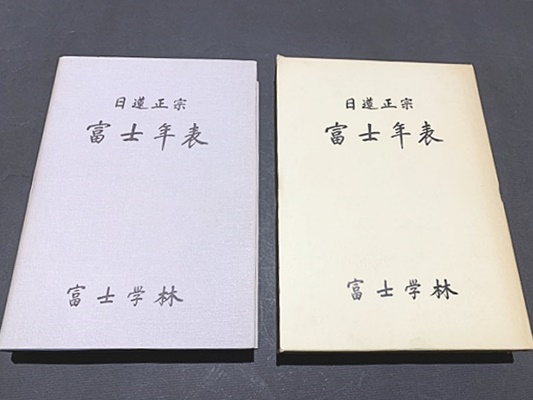 日蓮正宗
富士年表
富士学林
日蓮正宗
富士年表
富士学林